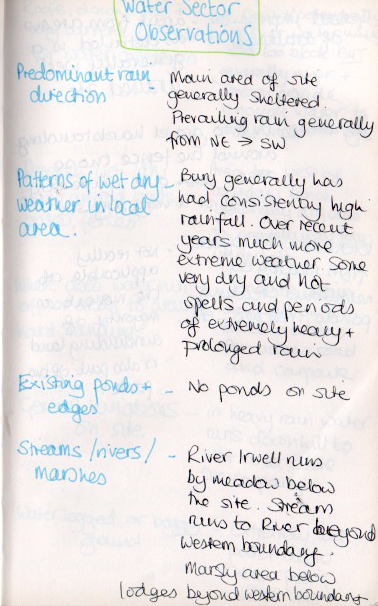 Water Sector
Observations
Predominant rain - Main area of site
direction generally sheltered.
Prevailing rain generally
from NE → SW
Patterns of wet dry - Bury generally has
weather in local had consistently high
area. rainfall. Over recent
years much more
extreme weather. Some
very dry and hot
spells and periods
of extremely heavy +
prolonged rain
Existing ponds + - No ponds on site
edges
Streams / rivers / - River Irwell runs
marshes by meadow below
the site. Stream
runs to River beyond
western boundary.
Marshy area below
lodges beyond western boundary